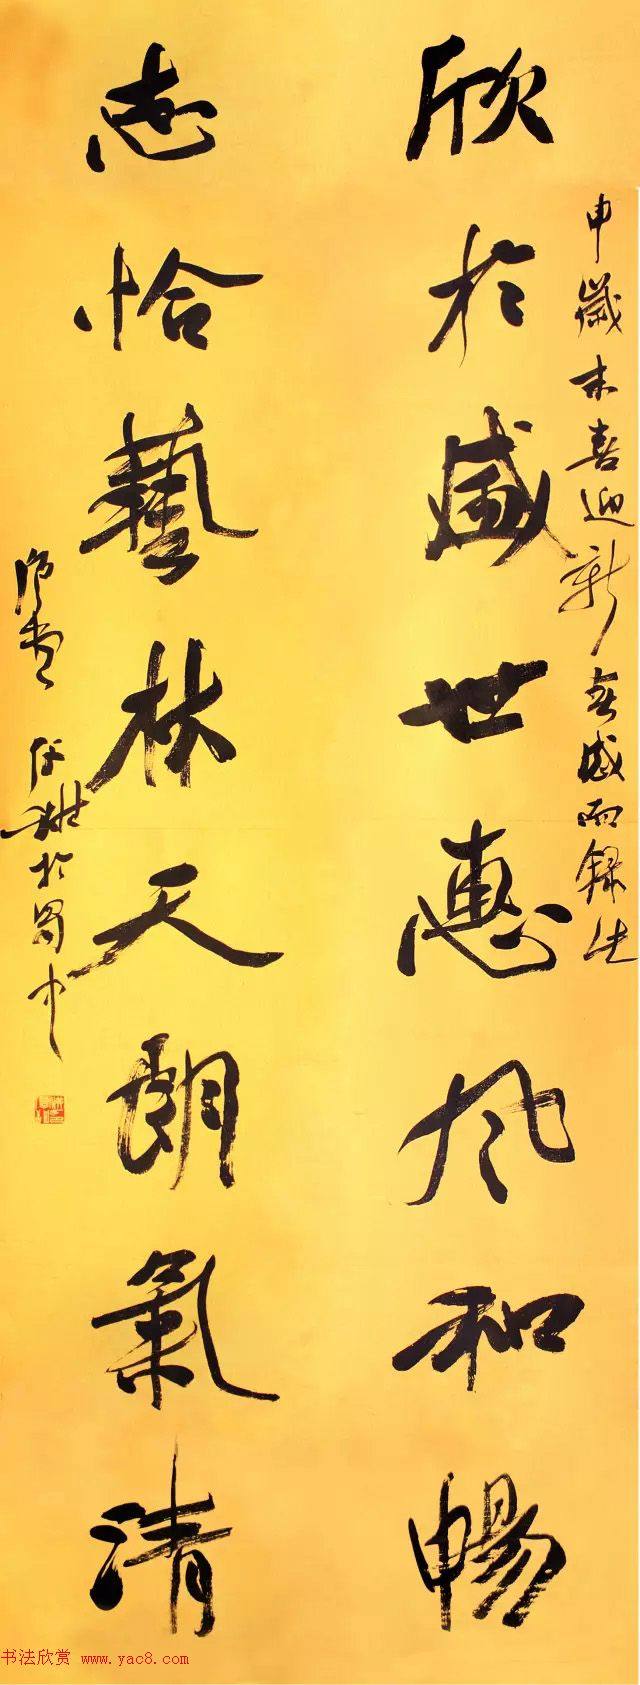 欣於盛世惠風和暢
申歲末喜迎新春感而錄此
志恰藝林天朗氣清
任雖於蜀中
书法欣赏 www.yac8.com